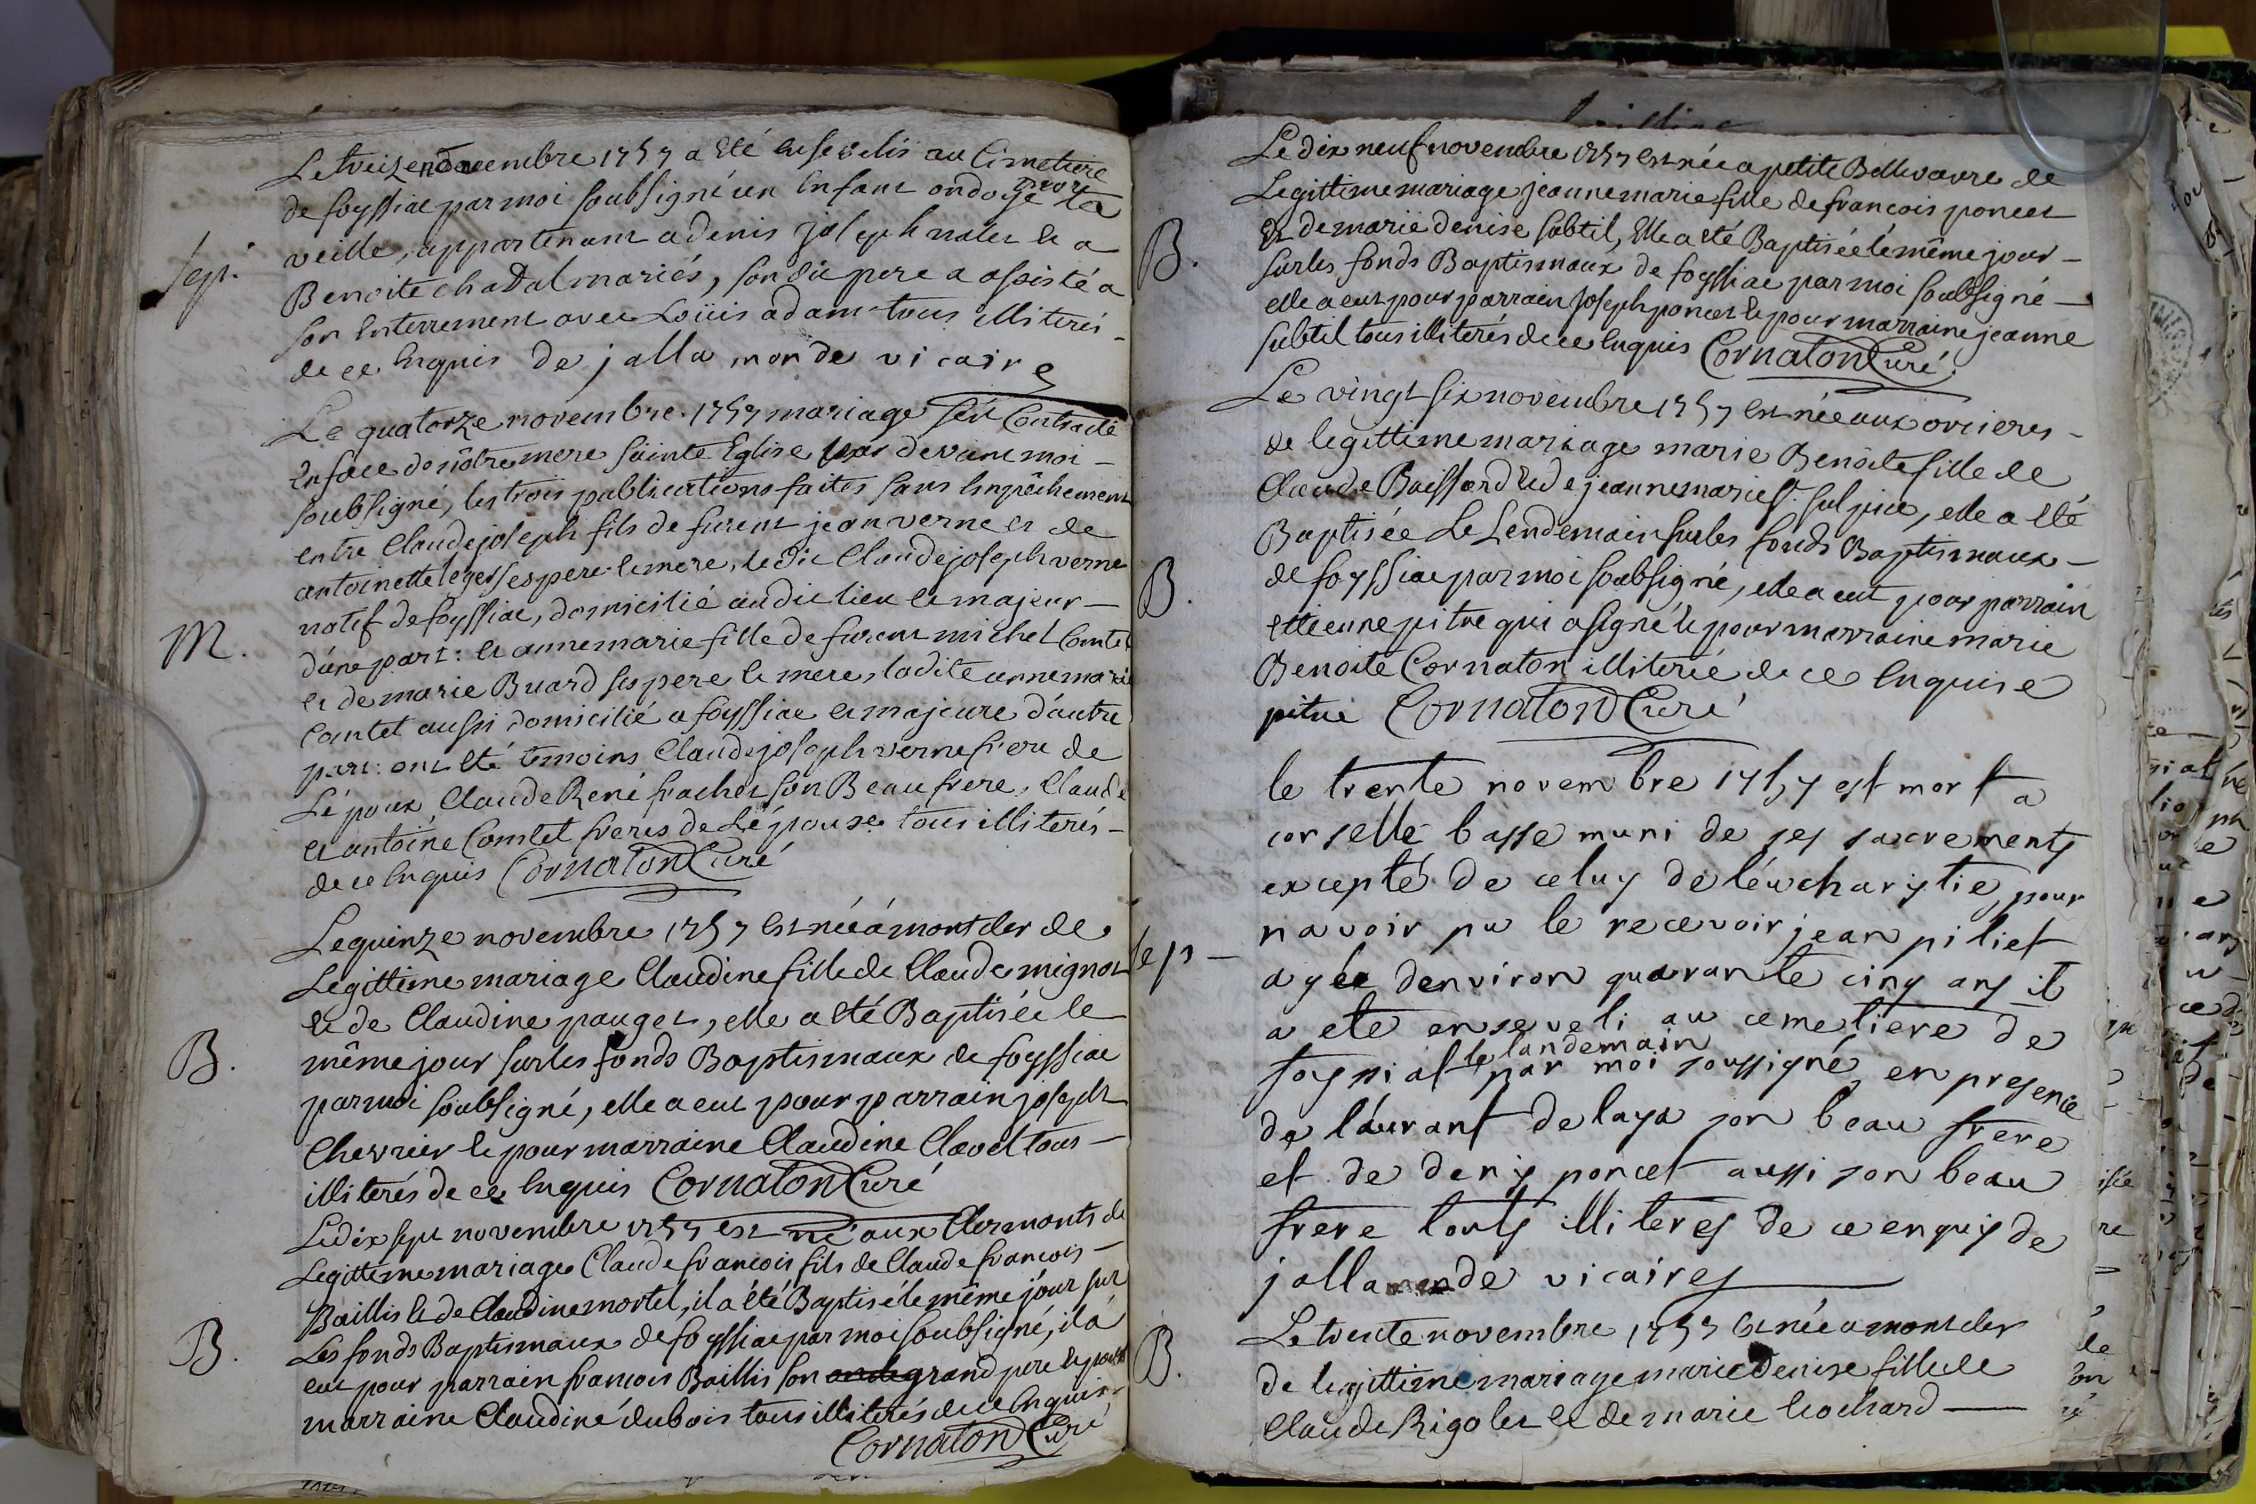 Le treize novembre 1757 a été enseveli au Cimetiere
de foyssiac par moi soubsigné un Enfant ondoyé mort la
veille, appartenant a denis joseph nolet et a
Sep.
Benoite chatal mariés, son dit pere a assisté a
son Enterrement avec Loüis adam tous illiterés
de ce Enquis de jallamonde vicaire
Le quatorze novembre 1757 mariage s'est Contracté
En face de nôtre mere sainte Eglise par devant moi
soubsigné, les trois publications faites sans Empêchement
entre Claude joseph fils de furent jean verne et de
antoinette leger ses pere et mere, ledit Claude joseph verne
natif de foyssiac, domicilié audit lieu et majeur
M.
d'une part: et anne marie fille de furent michel Comtet
et de marie Buard ses pere et mere, ladite anne marie
Comtet aussi domicilié a foyssiac et majeure d'autre
part: ont été temoins Claude joseph verne frere de
L'époux, Claude René frachet son Beau frere, Claude
et antoine Comtet freres de L'épouse tous illiterés
de ce Enquis Cornaton Curé
Le quinze novembre 1757 est née á montcler de
Legittime mariage Claudine fille de Claude mignot
et de Claudine pauget, elle a été Baptisée le
B.
même jour sur les fonds Baptismaux de foyssiac
par moi soubsigné, elle a eut pour parrain joseph
Chevrier et pour marraine Claudine Clavel tous
illiterés de ce Enquis Cornaton Curé
Le dix sept novembre 1757 est né aux Clermonts de
Legittime mariage Claude francois fils de Claude francois
Baillis et de Claudine mortel, il a été Baptisé le même jour sur
B.
Les fonds Baptismaux de foyssiac par moi soubsigné, il a
eut pour parrain francois Baillis son grand pere et pour
marraine Claudine dubois tous illiterés de ce Enquis
Cornaton Curé
Le dix neuf novembre 1757 est née a petite Bellevavre de
Legittime mariage jeanne marie fille de francois poncet
et de marie denise subtil, Elle a été Baptisée le même jour
B.
sur les fonds Baptismaux de foyssiac par moi soubsigné
elle a eut pour parrain joseph poncet et pour marraine jeanne
subtil tous illiterés de ce Enquis Cornaton Curé
Le vingt six novembre 1757 est née aux orcieres
de legittime mariage marie Benoite fille de
Claude Buissard et de jeanne marie St. sulpice, elle a été
Baptisée Le Lendemain sur les fonds Baptismaux
B.
de foyssiac par moi soubsigné, elle a eut pour parrain
ettienne pitre qui a signé et pour marraine marie
Benoite Cornaton illiterée de ce Enquise
pitre Cornaton Curé
le trente novembre 1757 est mort a
corselle basse muni de ses sacrements
excepté de celuy de léucharistie, pour
sep
navoir pu le recevoir jean piliet
agée denviron quarante cinq ans il
a eté enseveli au cemetiere de
le landemain
foyssiat par moi soussigné en presence
de láurant delaya son beau frere
et de denis poncet aussi son beau
frere touts illiteres de ce enquis de
jallamonde vicaire
Le trente novembre 1757 est née a montcler
B.
de legittime mariage marie denise fille de
Claude Rigolet et de marie brochard